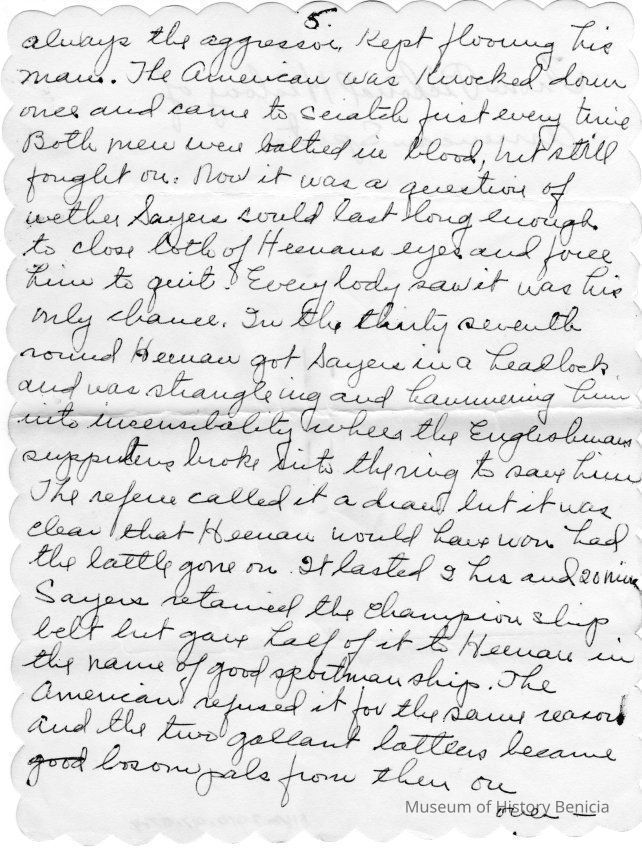 5.
always the aggressor, Kept flooring his
man. The American was Knocked down
once and came to scratch first every time
Both men were bathed in blood, but still
fought on. Now it was a question of
wether Sayers could last long enough
to close both of Heenans eyes and force
him to quit. Everybody saw it was his
only chance. In the thirty seventh
round Heenan got Sayers in a headlock
and was strangleing and hammering him
into insensibality when the Englishmans
supporters broke into the ring to save him
The referee called it a draw, but it was
clear that Heenan would have won had
the battle gone on. It lasted 2 hrs and 20 mins
Sayers retained the Champion ship
belt but gave half of it to Heenan in
the name of good sportmanship. The
American refused it for the same reason
and the two gallant battlers became
good bosom pals from then on
over –
Museum of History Benicia